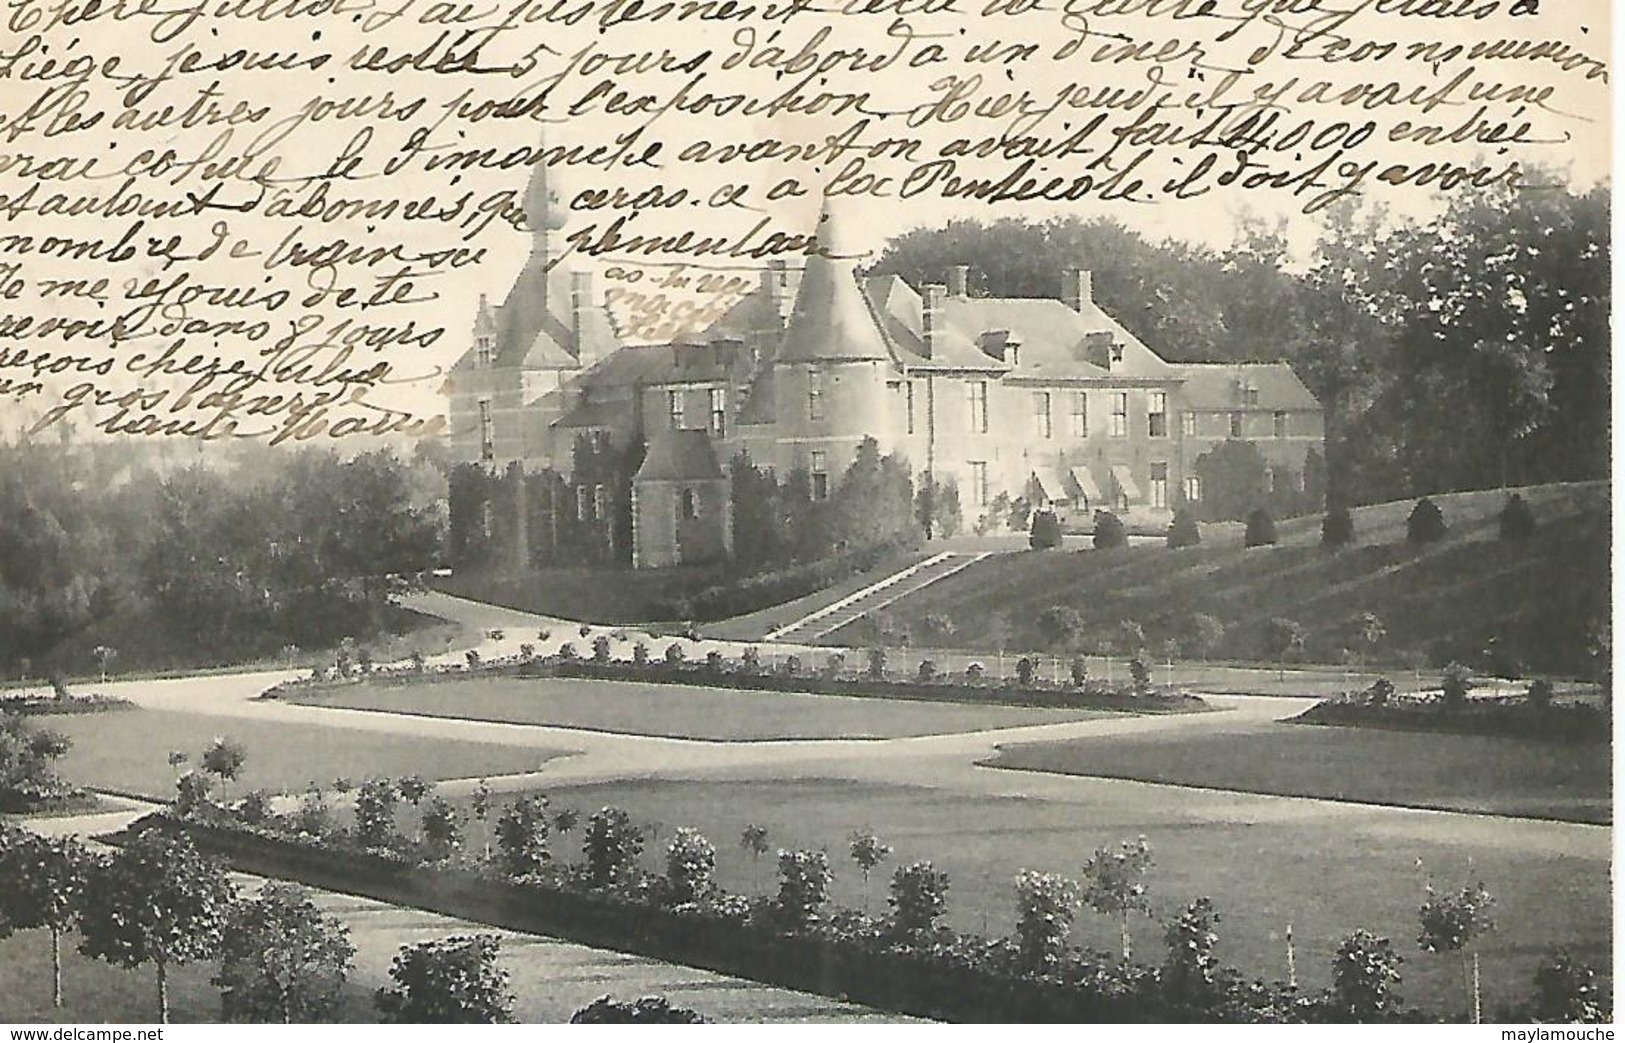 Chère Julia. J'ai justement reçu ta carte que j'étais à
Liége, je suis restée 5 jours d'abord à un diner de communion
et les autres jours pour l'exposition. Hier jeudi il y avait une
vrai cohue le dimanche avant on avait fait 14000 entrée
et autant d'abonnés, que ceras-ce à la Penticote. il doit y avoir
nombre de train su plémentair
Je me réjouis de te
revoir dans 8 jours
reçois chère Julia
un gros baiser de
tante Marie
as-tu reçu
ma
www.delcampe.net
maylamouche